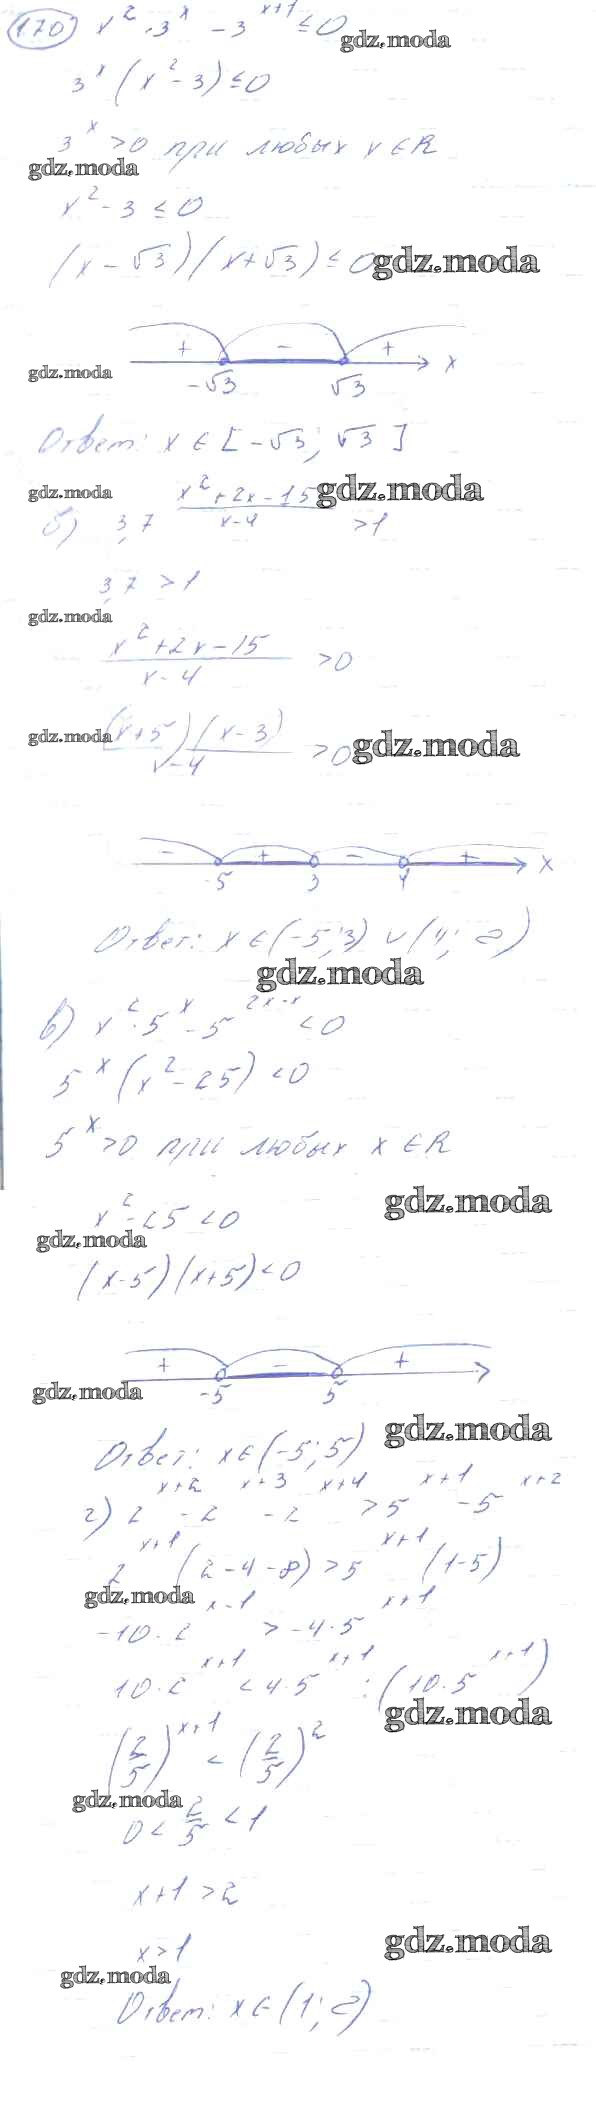 170) x² · 3ˣ - 3ˣ⁺¹ ≤ 0
gdz.moda
3ˣ (x² - 3) ≤ 0
3ˣ > 0 при любых x ∈ R
gdz.moda
x² - 3 ≤ 0
(x - √3)(x + √3) ≤ 0
gdz.moda
+ - +
gdz.moda
-√3 √3 x
Ответ: x ∈ [-√3; √3]
gdz.moda
gdz.moda
б) 3,7^((x² + 2x - 15)/(x - 4)) > 1
3,7 > 1
gdz.moda
(x² + 2x - 15)/(x - 4) > 0
gdz.moda
(x + 5)(x - 3)/(x - 4) > 0
gdz.moda
- + - +
-5 3 4 x
Ответ: x ∈ (-5; 3) ∪ (4; ∞)
gdz.moda
в) x² · 5ˣ - 5 < 0
5ˣ (x² - 25) < 0
5ˣ > 0 при любых x ∈ R
gdz.moda
x² - 25 < 0
gdz.moda
(x - 5)(x + 5) < 0
+ - +
gdz.moda
-5 5
gdz.moda
Ответ: x ∈ (-5; 5)
г) 2ˣ⁺² - 2ˣ⁺³ - 2ˣ⁺⁴ > 5ˣ⁺¹ - 5ˣ⁺²
2ˣ⁺¹ (2 - 4 - 8) > 5ˣ⁺¹ (1 - 5)
gdz.moda
-10 · 2ˣ⁻¹ > -4 · 5ˣ⁺¹
10 · 2ˣ⁺¹ < 4 · 5ˣ⁺¹ : (10 · 5ˣ⁺¹)
gdz.moda
(2/5)ˣ⁺¹ < (2/5)²
gdz.moda
0 < 2/5 < 1
x + 1 > 2
gdz.moda
x > 1
gdz.moda
Ответ: x ∈ (1; ∞)